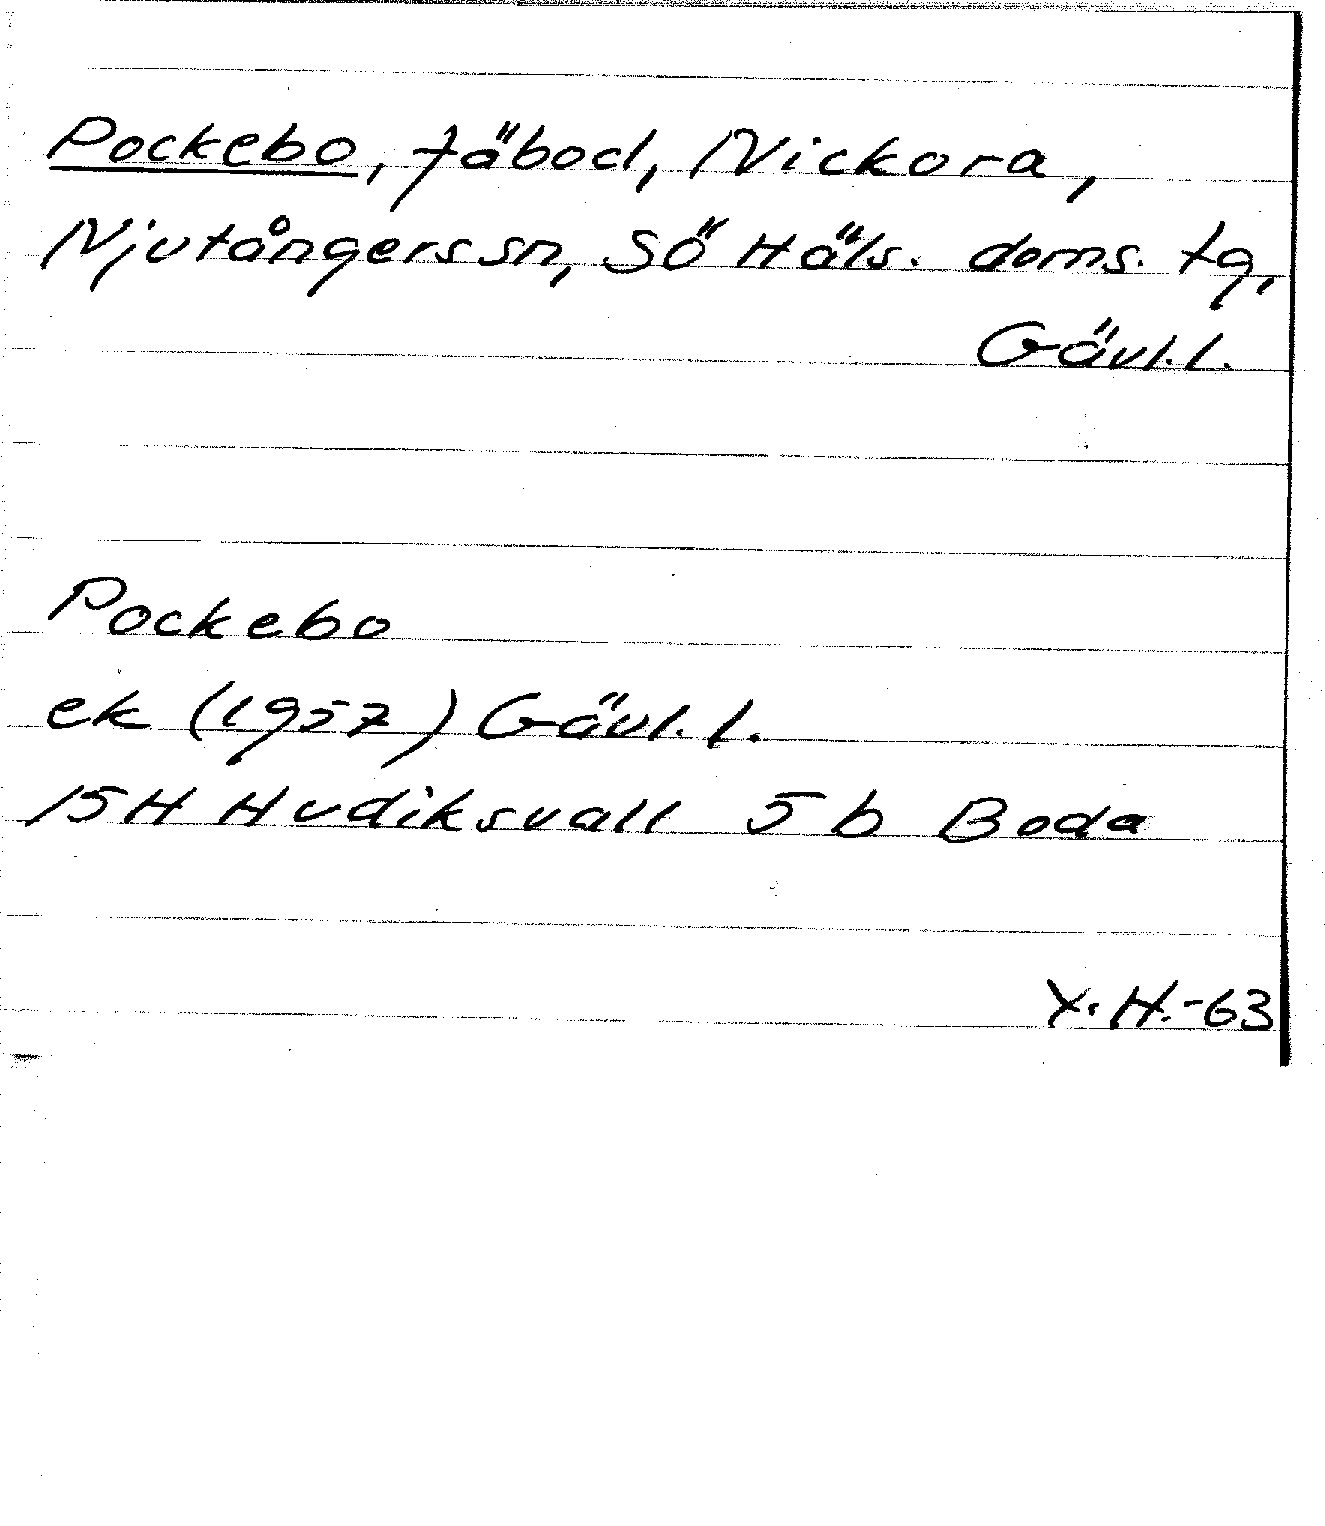 Pockebo, fäbod, Nickora,
Njutångers sn, Sö Häls. doms. tg,
Gävl.l.
Pockebo
ek (1957) Gävl.l.
15H Hudiksvall 5b Boda
Y.H.-63